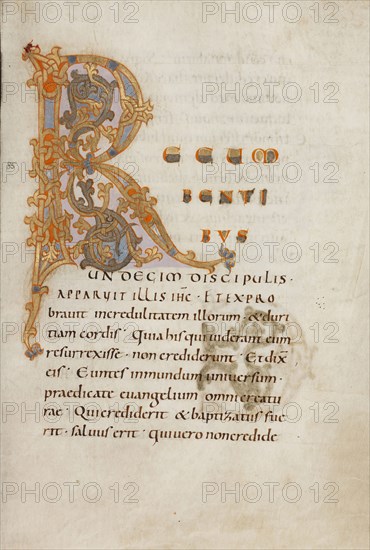 R
ECUM
BENTI
BUS
UNDECIM DISCIPULIS·
APPARUIT ILLIS IHC· ET EXPRO
bravit incredulitatem illorum· & duri
tiam cordis· Quia his qui viderant eum
resurrexisse· non crediderunt· Et dix̄
eis· Euntes in mundum universum·
praedicate evangelium omni creatu
rae· Qui crediderit & baptizatus fue
rit· salvus erit· qui vero non credide
PHOTO 12